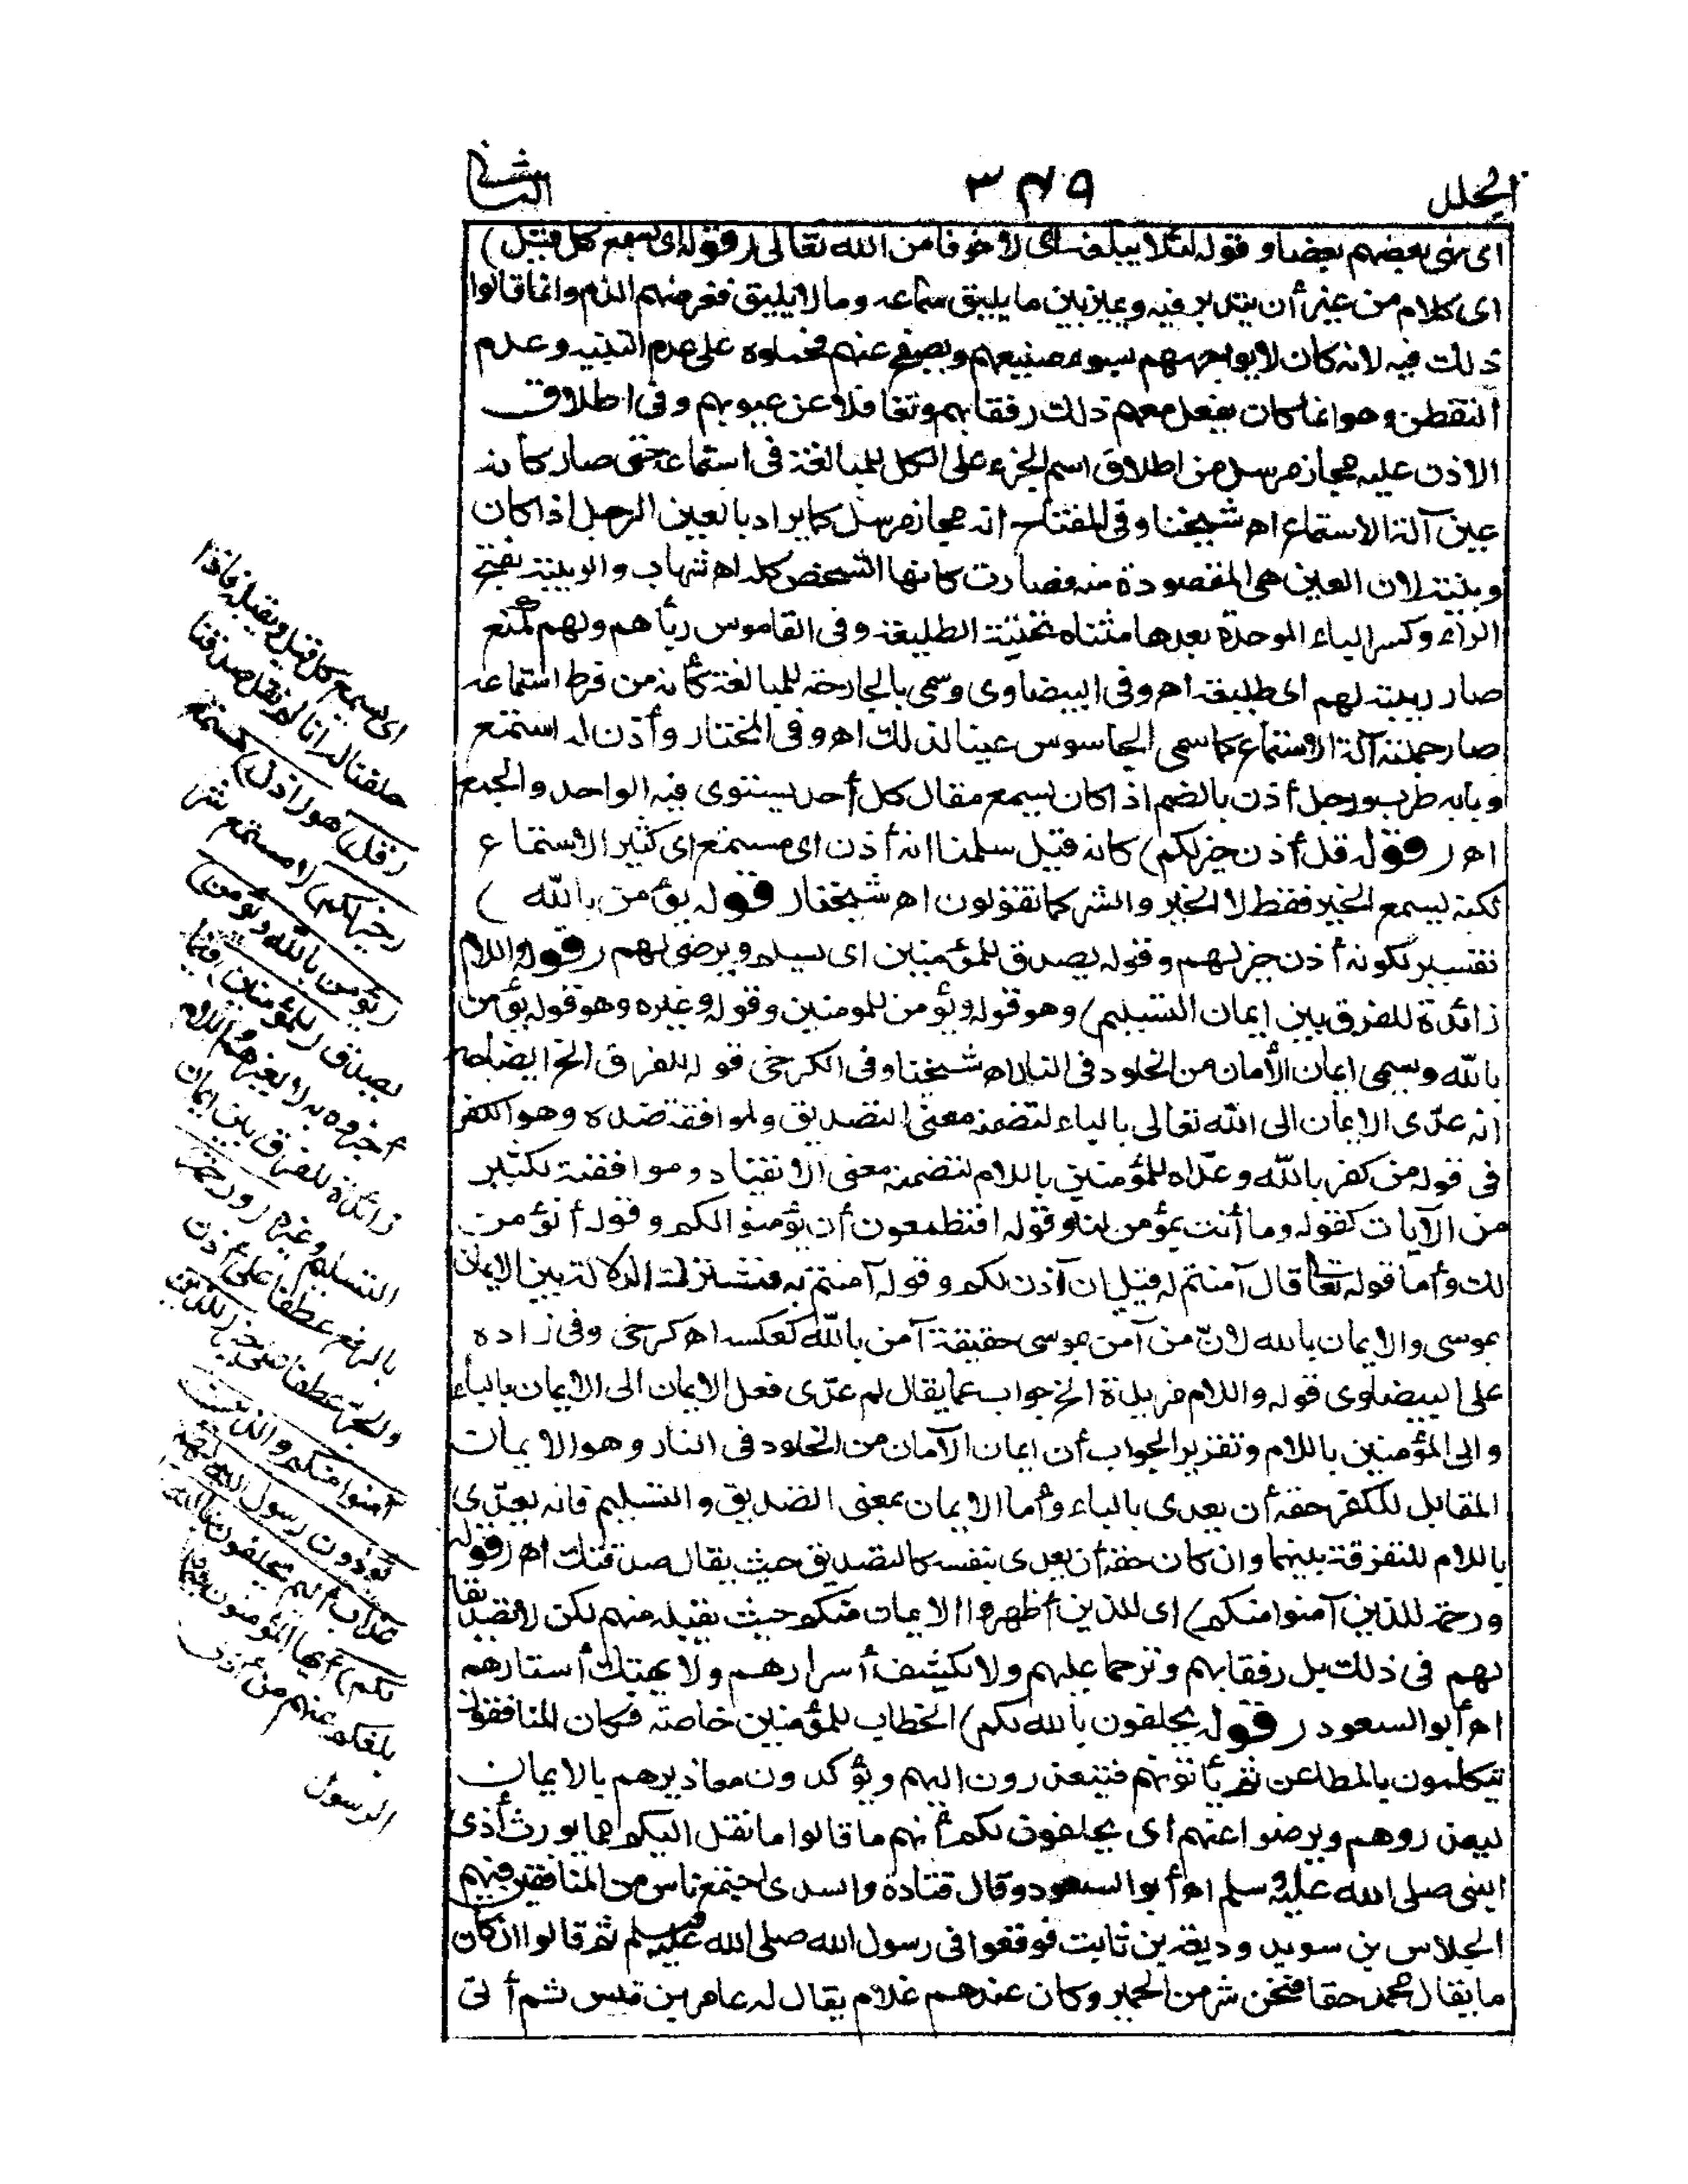 المجلد
٣٤٩
الثاني
اى نهى بعضهم بعضا وقوله لئلا يبلغه اى لا خوفا من الله تعالى (قوله اى يسمع كل قيل)
اى كلام من غير أن يتدبر فيه ويميز بين ما يليق سماعه وما لا يليق فغرضهم الذم وانما قالوا
ذلك فيه لانه كان لا يواجههم بسوء صنيعهم ويصفح عنهم فحملوه على عدم التنبه وعدم
التفطن وهو انما كان يفعل معهم ذلك رفقا بهم وتغافلا عن عيوبهم وفى اطلاق
الاذن عليه مجاز مرسل من اطلاق اسم الجزء على الكل للمبالغة فى استماعه حتى صار كانه
عين آلة الاستماع اهـ شيخنا وفى المفتاح انه مجاز مرسل كما يراد بالعين الرجل اذا كان
ربيئة لان العين هى المقصودة منه فصارت كانها الشخص كله اهـ شهاب والربيئة بفتح
الراء وكسر الباء الموحدة بعدها مثناة تحتية الطليعة وفى القاموس ربأهم ولهم كمنع
صار ربيئة لهم اى طليعة اهـ وفى البيضاوى وسمى بالجارحة للمبالغة كأنه من فرط استماعه
صار جملته آلة الاستماع كما سمى الجاسوس عينا لذلك اهـ وفى المختار وأذن له استمع
وبابه طرب ورجل أذن بالضم اذا كان يسمع مقال كل أحد يستوى فيه الواحد والجمع
اهـ (قوله قل أذن خير لكم) كانه قيل سلمنا انه أذن اى مستمع اى كثير الاستماع
لكنه يسمع الخير فقط لا الخير والشر كما تقولون اهـ شيخنا (قوله يؤمن بالله)
تفسير لكونه أذن خير لهم وقوله يصدق للمؤمنين اى يسلم ويرضى لهم (قوله واللام
زائدة للفرق بين ايمان التسليم) وهو قوله ويؤمن للمومنين وقوله وغيره وهو قوله يؤمن
بالله ويسمى ايمان الأمان من الخلود فى النار اهـ شيخنا وفى الكرخى قوله للفرق الخ ايضاحه
انه عدّى الايمان الى الله تعالى بالباء لتضمنه معنى التصديق ولموافقة ضده وهو الكفر
فى قوله من كفر بالله وعدّاه للمؤمنين باللام لتضمنه معنى الانقياد وموافقة لكثير
من الآيات كقوله وما أنت بمؤمن لنا وقوله افتطمعون أن يؤمنوا لكم وقوله أنؤمن
لك وأما قوله تعالى قال آمنتم له قبل ان آذن لكم وقوله آمنتم به فمشترك الدلالة بين الايمان
بموسى والايمان بالله لانّ من آمن بموسى حقيقة آمن بالله كعكسه اهـ كرخى وفى زاده
على البيضاوى قوله واللام مزيدة الخ جواب عما يقال لم عدّى فعل الايمان الى الايمان بالباء
والى المؤمنين باللام وتقرير الجواب أن ايمان الآمان من الخلود فى النار وهو الايمان
المقابل للكفر حقه أن يعدى بالباء وأما الايمان بمعنى التصديق والتسليم فانه يعدّى
باللام للتفرقة بينهما وان كان حقه أن يعدى بنفسه كالتصديق حيث يقال صدقتك اهـ (قوله
ورحمة للذين آمنوا منكم) اى للذين أظهروا الايمان منكم حيث يقبله منهم لكن لا تصديقا
لهم فى ذلك بل رفقا بهم وترحما عليهم ولا يكشف أسرارهم ولا يهتك أستارهم
اهـ أبو السعود (قوله يحلفون بالله لكم) الخطاب للمؤمنين خاصة فكان المنافقون
يتكلمون بالمطاعن ثم يأتونهم فيتعذرون اليهم ويؤكدون معاذيرهم بالايمان
ليعذروهم ويرضوا عنهم اى يحلفون لكم أنهم ما قالوا ما نقل اليكم مما يورث أذى
النبى صلى الله عليه وسلم اهـ أبو السعود وقال قتادة والسدى اجتمع ناس من المنافقين فيهم
الجلاس بن سويد ووديعة بن ثابت فوقعوا فى رسول الله صلى الله عليه وسلم ثم قالوا ان كان
ما يقال محمد حقا فنحن شر من الحمير وكان عندهم غلام يقال له عامر بن قيس ثم أتى
اى يسمع كل قيل ويقبله فاذا
حلفنا له انا لم نقل صدقنا
(قل) هو (اذن) مستمع
(خير لكم) لا مستمع شر
(يؤمن بالله ويؤمن)
يصدق (للمؤمنين) فيما
أخبروه به لا لغيرهم واللام
زائدة للفرق بين ايمان
التسليم وغيره (ورحمة)
بالرفع عطفا على أذن
والجر عطفا على خير (للذين
آمنوا منكم والذين
يؤذون رسول الله لهم
عذاب أليم يحلفون بالله
لكم) أيها المؤمنون فيما
بلغكم عنهم من أذى
الرسول